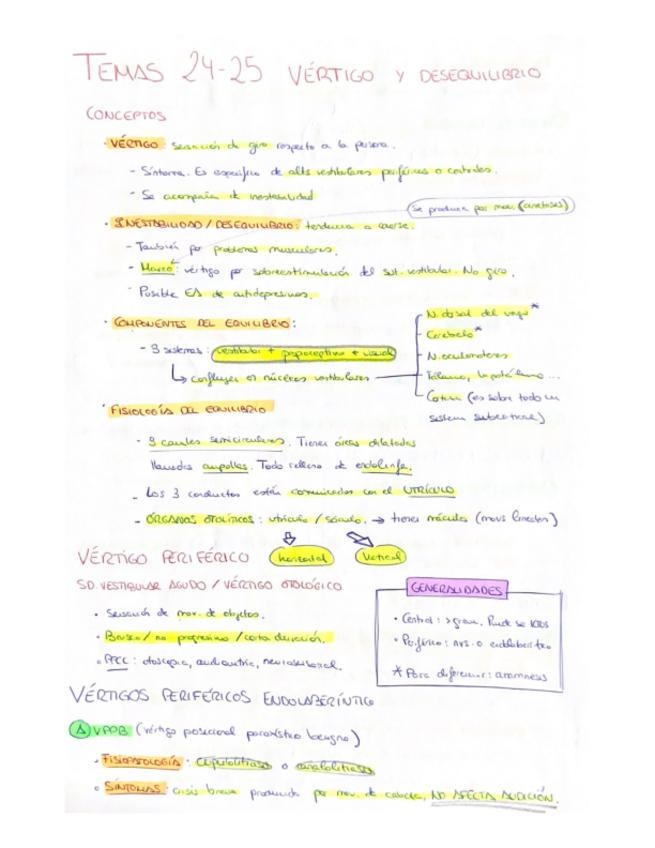 TEMAS 24-25 VÉRTIGO Y DESEQUILIBRIO
CONCEPTOS
· VÉRTIGO: Sensación de giro respecto a la persona.
- Síntoma. Es específico de alts vestibulares periféricos o centrales.
- Se acompaña de inestabilidad
Se produce por mov. (cinetosis)
· INESTABILIDAD / DESEQUILIBRIO: tendencia a caerse.
- También por problemas musculares.
- Mareo: vértigo por sobreestimulación del sist. vestibular. No giro.
· Posible EA de antidepresivos.
· COMPONENTES DEL EQUILIBRIO:
- 3 sistemas: vestibular + propioceptivo + visual
↳ confluyen en núcleos vestibulares
N. dorsal del vago*
Cerebelo*
N. oculomotores
Tálamo, hipotálamo ...
Corteza (es sobre todo un
sistema subcortical)
· FISIOLOGÍA DEL EQUILIBRIO
- 3 canales semicirculares. Tienen áreas dilatadas
llamadas ampollas. Todo relleno de endolinfa.
- Los 3 conductos están comunicados con el UTRÍCULO
- ÓRGANOS OTOLÍTICOS: utrículo / sáculo. → tienen máculas (movs lineales)
horizontal Vertical
VÉRTIGO PERIFÉRICO
SD. VESTIBULAR AGUDO / VÉRTIGO OTOLÓGICO
• Sensación de mov. de objetos.
• Brusco / no progresivo / corta duración.
• PPCC: otoscopia, audiometría, neurosensorial.
GENERALIDADES
• Central: > grave. Puede ser ICTUS
• Periférico: nvs. o endolaberíntico
* Para diferenciar: anamnesis
VÉRTIGOS PERIFÉRICOS ENDOLABERÍNTICO
A VPPB (vértigo posicional paroxístico benigno)
· FISIOPATOLOGÍA: cupulolitiasis o canalolitiasis
• SÍNTOMAS: crisis breve producida por mov. de cabeza, NO AFECTA AUDICIÓN.